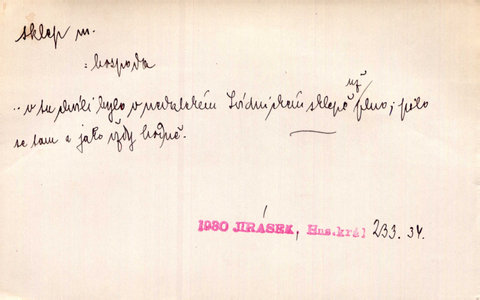 sklep m.
: hospoda
.. v tu chvíli bylo v nedalekém Svídnickém sklepě už plno; pilo
se tam a jako vždy hodně.
1930 JIRÁSEK, Hus.král 233. 34.